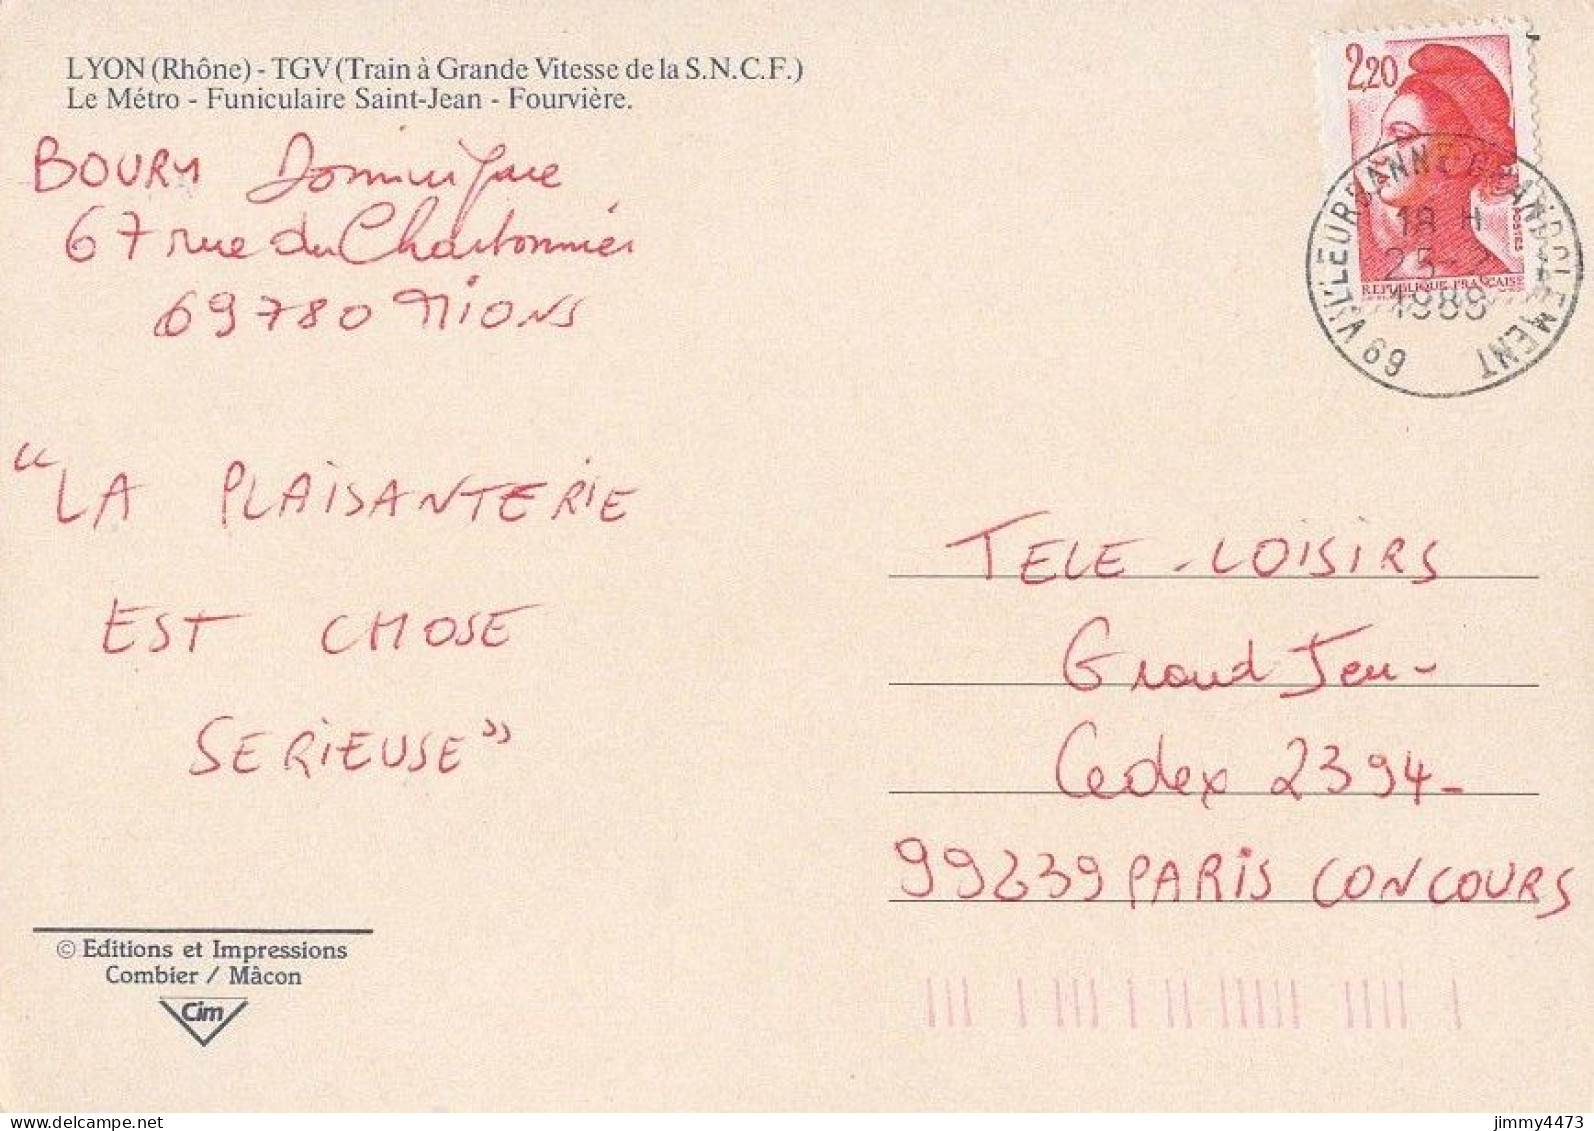 LYON (Rhône) - TGV (Train à Grande Vitesse de la S.N.C.F.)
Le Métro - Funiculaire Saint-Jean - Fourvière.
BOURY Dominique
67 rue du Charbonnier
69780 MIONS
"LA PLAISANTERIE
EST CHOSE
SERIEUSE"
© Editions et Impressions
Combier / Mâcon
Cim
2,20
POSTES
REPUBLIQUE FRANÇAISE
69 VILLEURBANNE GRANDCLEMENT
18 H
25-2
1988
TELE-LOISIRS
Grand Jeu-
Cedex 2394-
99239 PARIS CONCOURS
jimmy4473